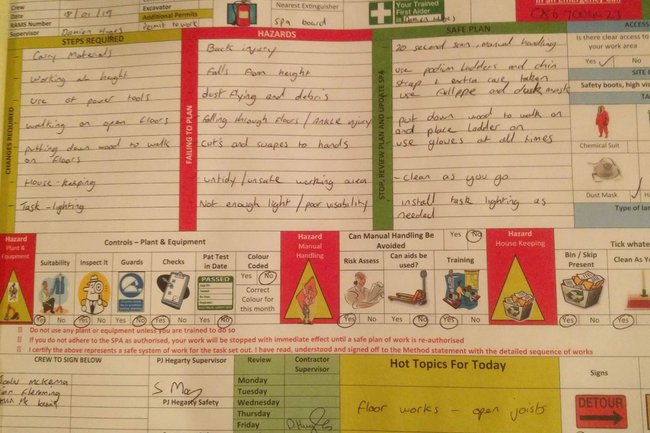 Crew
Date 8/01/19
RAMS Number
Supervisor Damien Hughes
Excavator
Additional Permits
Permit to work
Nearest Extinguisher
Spa board
Your Trained First Aider is
In an Emergency Call
STEPS REQUIRED
HAZARDS
SAFE PLAN
ACCESS
CHANGES REQUIRED
FAILING TO PLAN
STOP, REVIEW PLAN AND UPDATE SPA
- Carry Materials
- Working at height
- Use of power tools
- walking on open floors
- putting down wood to walk on floors
- House-keeping
- Task-lighting
Back injury
Falls from height
dust flying and debris
falling through floors / Ankle injury
cuts and scrapes to hands
untidy / unsafe working area
Not enough light / poor visability
20 second scan, manual handling
use podium ladders and chin
strap & extra care taken
use full ppe and dusk mask
put down wood to walk on
and place ladder on
use gloves at all times
- Clean as you go
- install task lighting as
needed
Is there clear access to
your work area
Yes No
SITE
Safety boots, high vis
Chemical Suit
Dust Mask
Type of
Hazard
Plant & Equipment
Controls – Plant & Equipment
Suitability
Inspect it
Guards
Checks
Pat Test in Date
PASSED
Colour Coded
Yes No
Correct Colour for this month
Yes No Yes No Yes No Yes No Yes No
Hazard
Manual Handling
Can Manual Handling Be Avoided
Yes No
Risk Assess
Can aids be used?
Training
Yes No Yes No Yes No
Hazard
House Keeping
Tick what
Bin / Skip Present
Clean As
Yes No Yes
Do not use any plant or equipment unless you are trained to do so
If you do not adhere to the SPA as authorised, your work will be stopped with immediate effect until a safe plan of work is re-authorised
I certify the above represents a safe system of work for the task set out. I have read, understood and signed off to the Method statement with the detailed sequence of works
CREW TO SIGN BELOW
PJ Hegarty Supervisor
PJ Hegarty Safety
Review
Contractor Supervisor
Monday
Tuesday
Wednesday
Thursday
Friday
Hot Topics For Today
Floor works - open joists
Signs
DETOUR